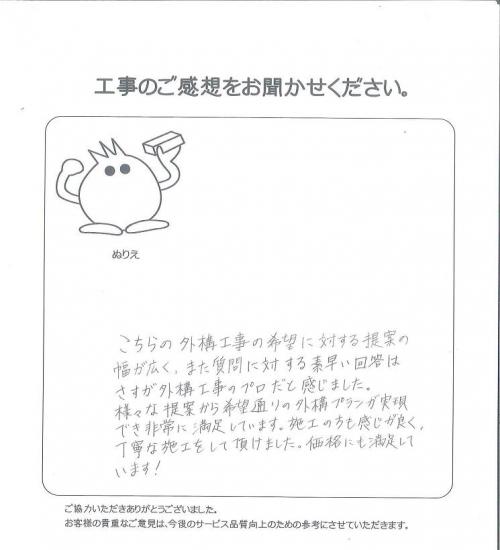 工事のご感想をお聞かせください。
ぬりえ
こちらの外構工事の希望に対する提案の
幅が広く、また質問に対する素早い回答は
さすが外構工事のプロだと感じました。
様々な提案から希望通りの外構プランが実現
でき非常に満足しています。施工の方も感じが良く、
丁寧な施工をして頂けました。価格にも満足して
います!
ご協力いただきありがとうございました。
お客様の貴重なご意見は、今後のサービス品質向上のための参考にさせていただきます。